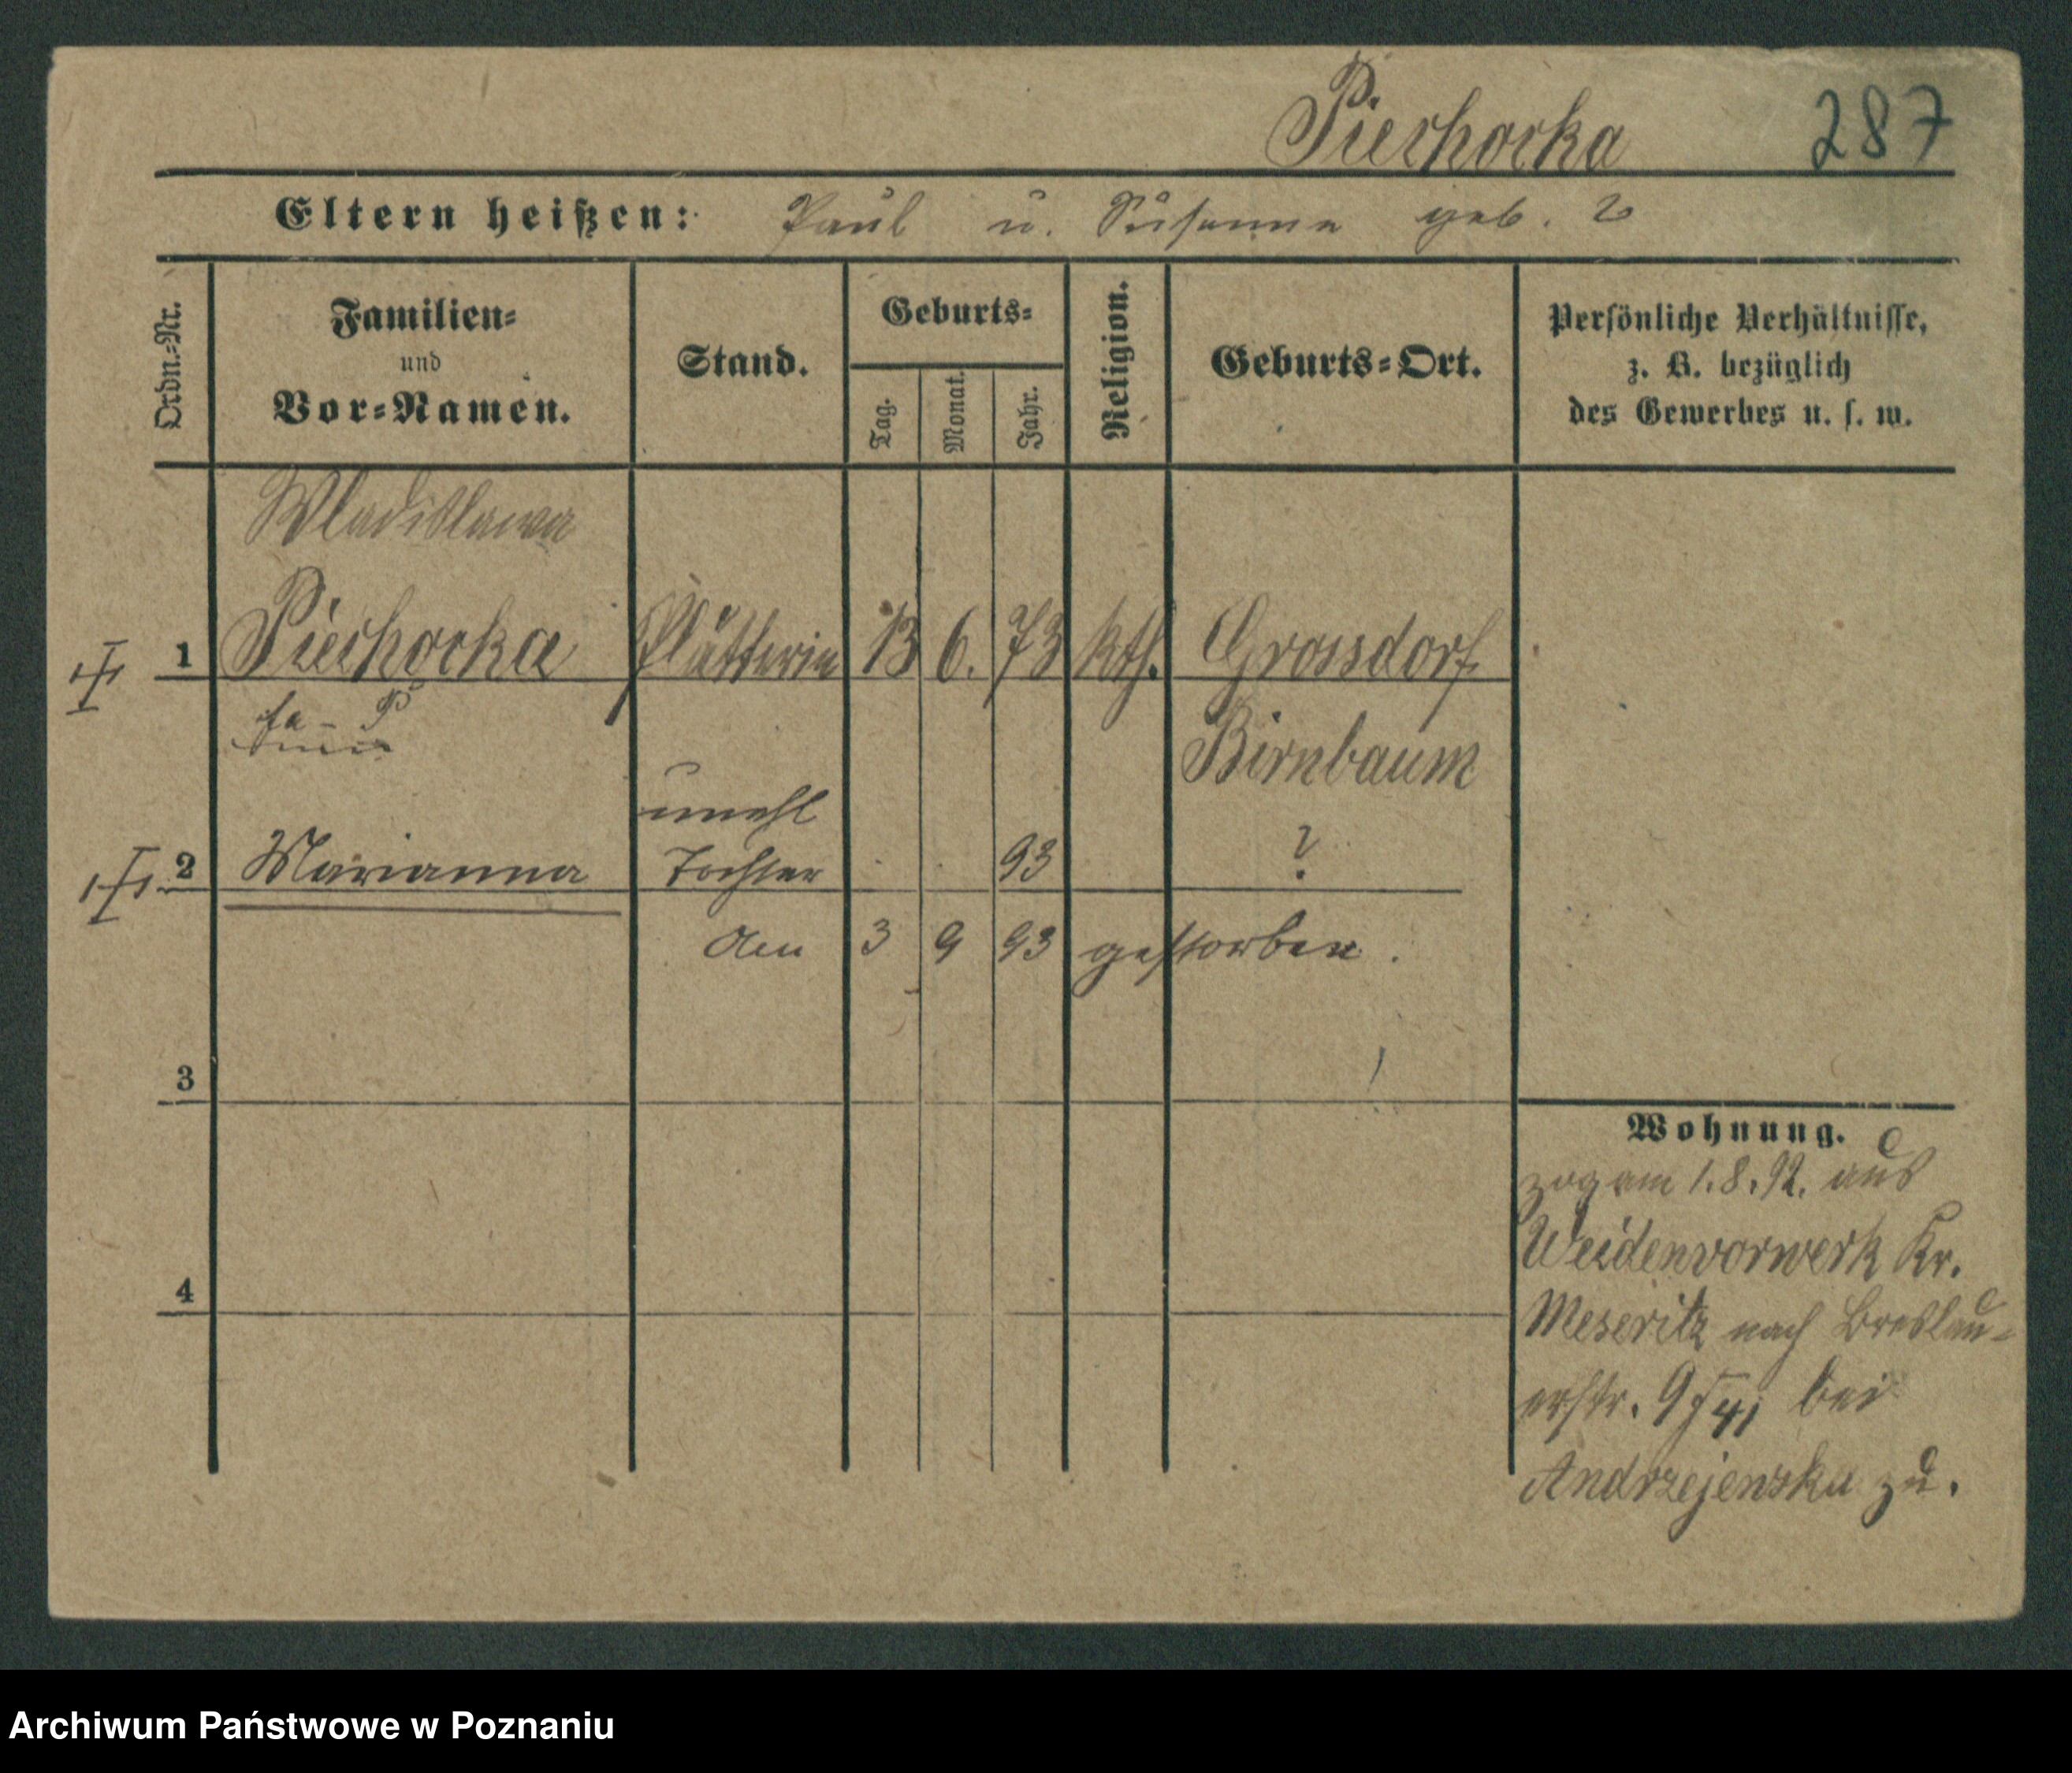 Piechocka 287
Eltern heißen: Paul u. Susanna geb. ?
Ordn.-Nr.
Familien-
und
Vor-Namen.
Stand.
Geburts-
Tag.
Monat.
Jahr.
Religion.
Geburts-Ort.
Persönliche Verhältnisse,
z. B. bezüglich
des Gewerbes u. s. w.
Wladislawa
1 Piechocka Plätterin 13 6. 73 kth. Grossdorf
Birnbaum
unehl
2 Marianna Tochter 93 ?
den 3 9 93 gestorben.
3
4
Wohnung.
zog am 1.8.92. aus
Weidenvorwerk Kr.
Meseritz nach Breslau-
erstr. 9 bei
Andrzejewska zu.
Archiwum Państwowe w Poznaniu